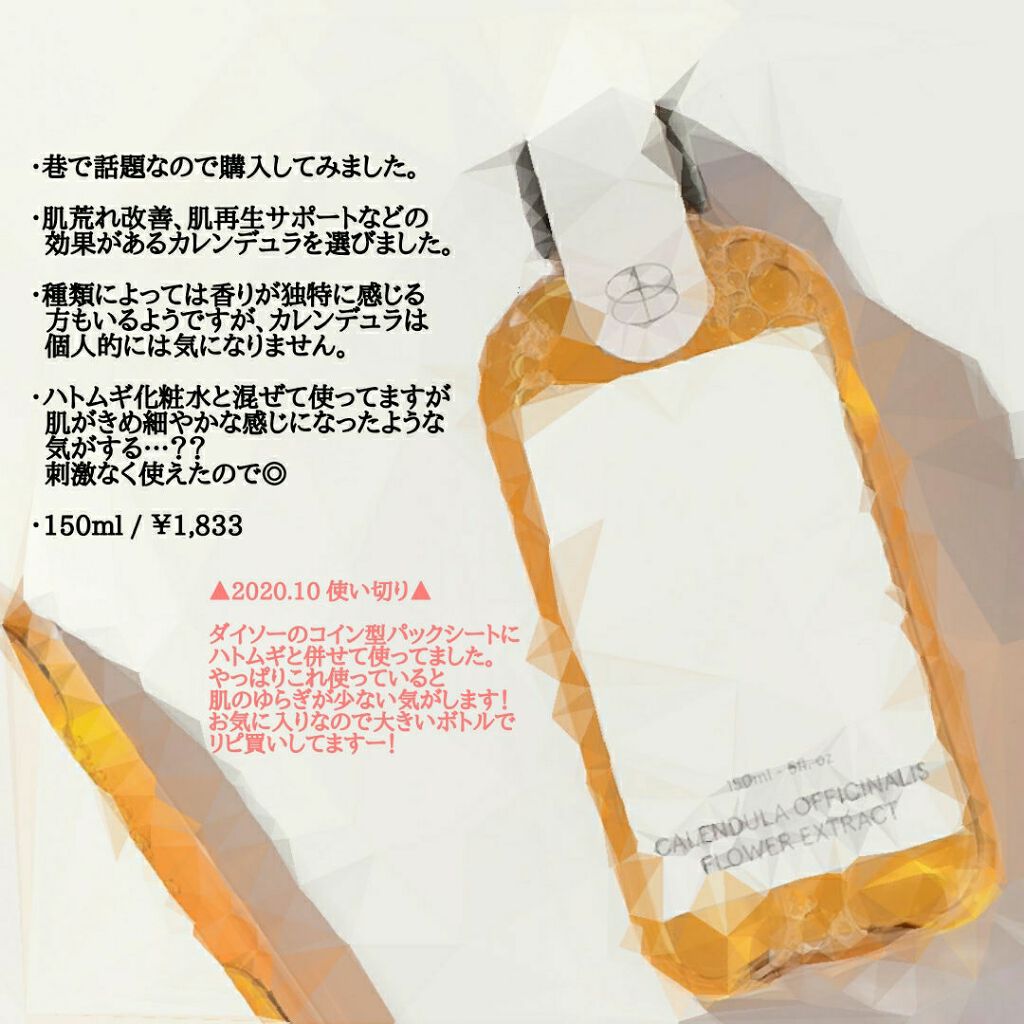 ・巷で話題なので購入してみました。
・肌荒れ改善、肌再生サポートなどの
効果があるカレンデュラを選びました。
・種類によっては香りが独特に感じる
方もいるようですが、カレンデュラは
個人的には気になりません。
・ハトムギ化粧水と混ぜて使ってますが
肌がきめ細やかな感じになったような
気がする…??
刺激なく使えたので◎
・150ml / ¥1,833
▲2020.10 使い切り▲
ダイソーのコイン型パックシートに
ハトムギと併せて使ってました。
やっぱりこれ使っていると
肌のゆらぎが少ない気がします!
お気に入りなので大きいボトルで
リピ買いしてますー!
150ml - 5fl. oz
CALENDULA OFFICINALIS
FLOWER EXTRACT